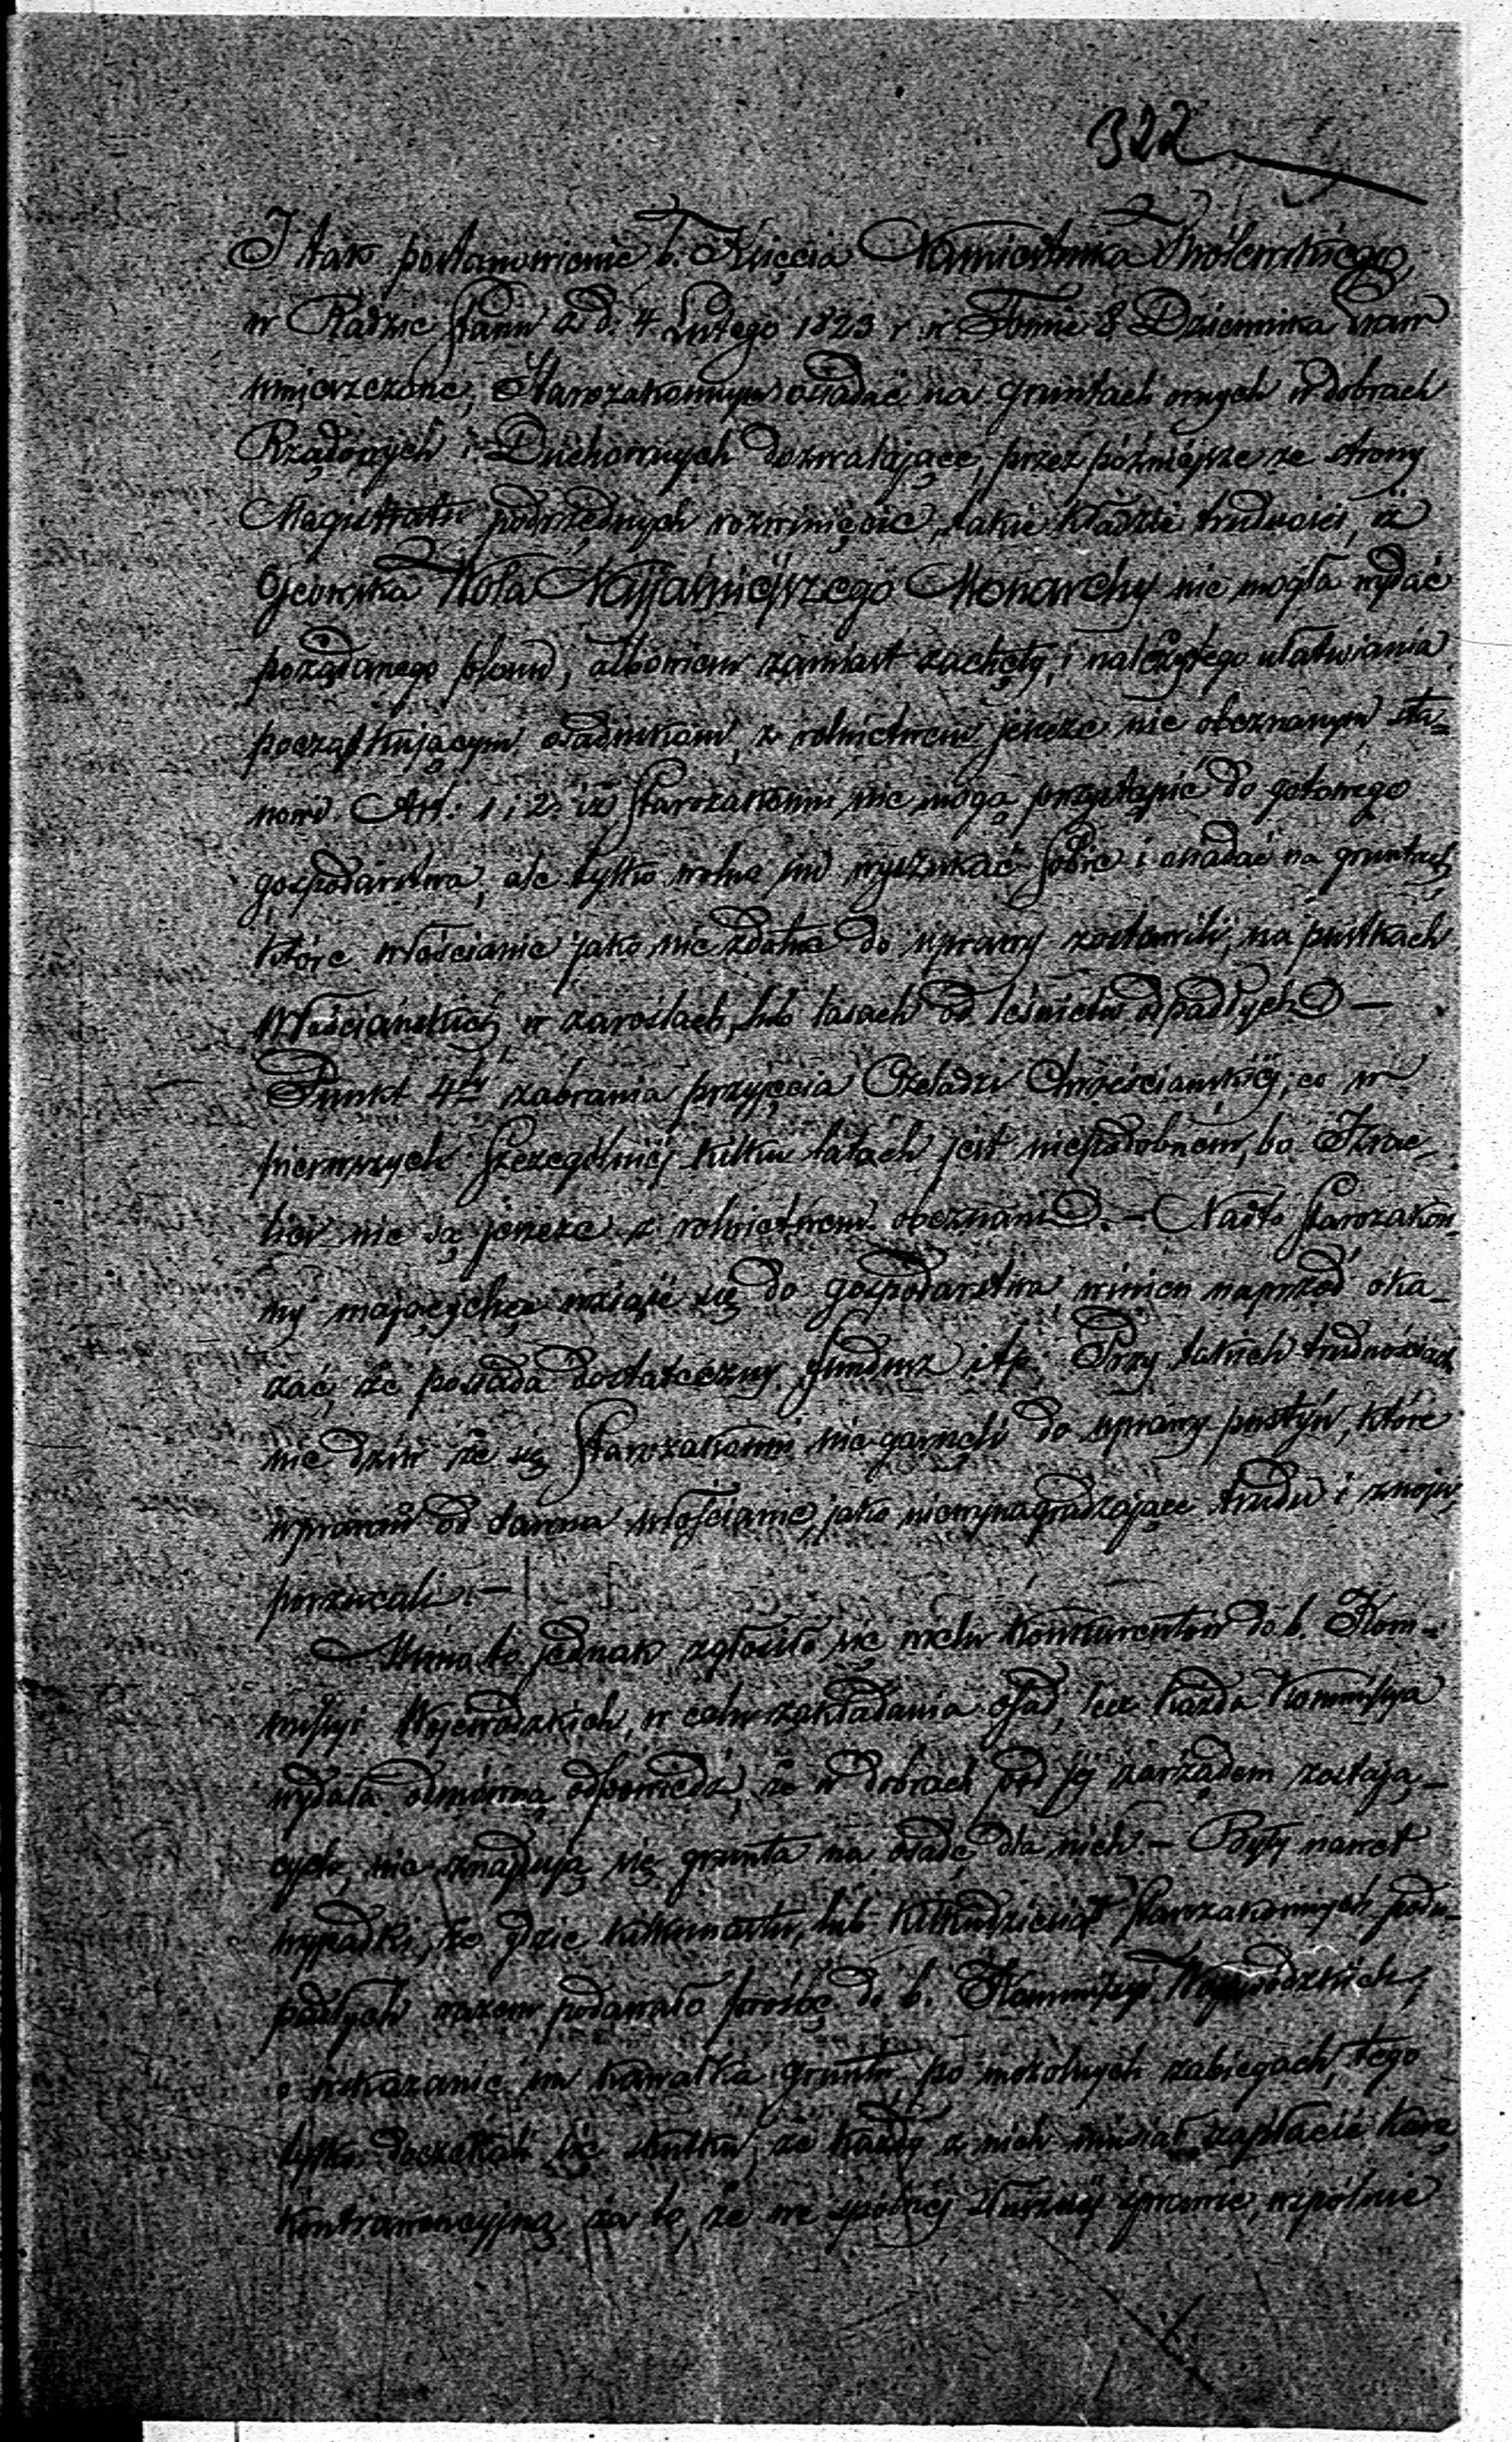 322
I tak postanowienie b. Księcia Namiestnika Królewskiego,
w Radzie Stanu d. d. 4 Lutego 1823 r. w Tomie 8 Dziennika Praw
umieszczone, Starozakonnym osiadać na gruntach ornych w dobrach
Rządowych i Duchownych dozwalające, przez późniejsze ze strony
Magistratur podrzędnych rozwinięcie, takie kładzie trudności, iż
Ojcowska Wola Najjaśniejszego Monarchy nie mogła wydać
pożądanego plonu, albowiem zamiast zachęty, i należytego ułatwiania
początkującym osadnikom, z rolnictwem jeszcze nie obeznanym, sta-
nowi Art: 1 i 2. iż Starozakonni nie mogą przystąpić do gotowego
gospodarstwa, ale tylko wolno im wyszukać sobie i osiadać na gruntach
które włościanie jako nie zdatne do uprawy zostawili, na pustkach
Włościańskich w zaroślach, lub lasach od leśnictw odpadłych —
Punkt 4ty zabrania przyjęcia Czeladzi Chrześciańskiéj, co w
pierwszych szczególniéj kilku latach jest niepodobném, bo Izrae-
lici nie są jeszcze z rolnictwem obeznani. — Nadto Starozakon
ny mający chęć wziąść się do gospodarstwa winien naprzód oka-
zać, że posiada dostateczny fundusz itp. Przy takich trudnościach
nie dziw że się Starozakonni nie garnęli do uprawy pustyń, które
wprawni od dawna włościanie, jako niewynagradzające trudu i znoju,
porzucali. —
Mimo to jednak zgłosiło się wielu konkurentów do b. Kom-
missyi Wojewódzkich, w celu zakładania osad, lecz każda Kommissya
wydała odmówną odpowiedź, że w dobrach pod jéj zarządem zostają-
cych, nie znajdują się grunta na osadę dla nich. — Były nawet
wypadki, że gdzie kilkunastu, lub kilkudziesiąt Starozakonnych podu-
padłych razem podawało prośbę do b. Kommissyi Wojewódzkich,
o wskazanie im kawałka gruntu po mozolnych zabiegach, tego
tylko doczekali się skutku, że każdy z nich musiał zapłacić karę
kontrawencyjną za to, że we spólnéj słusznéj sprawie, wspólnie